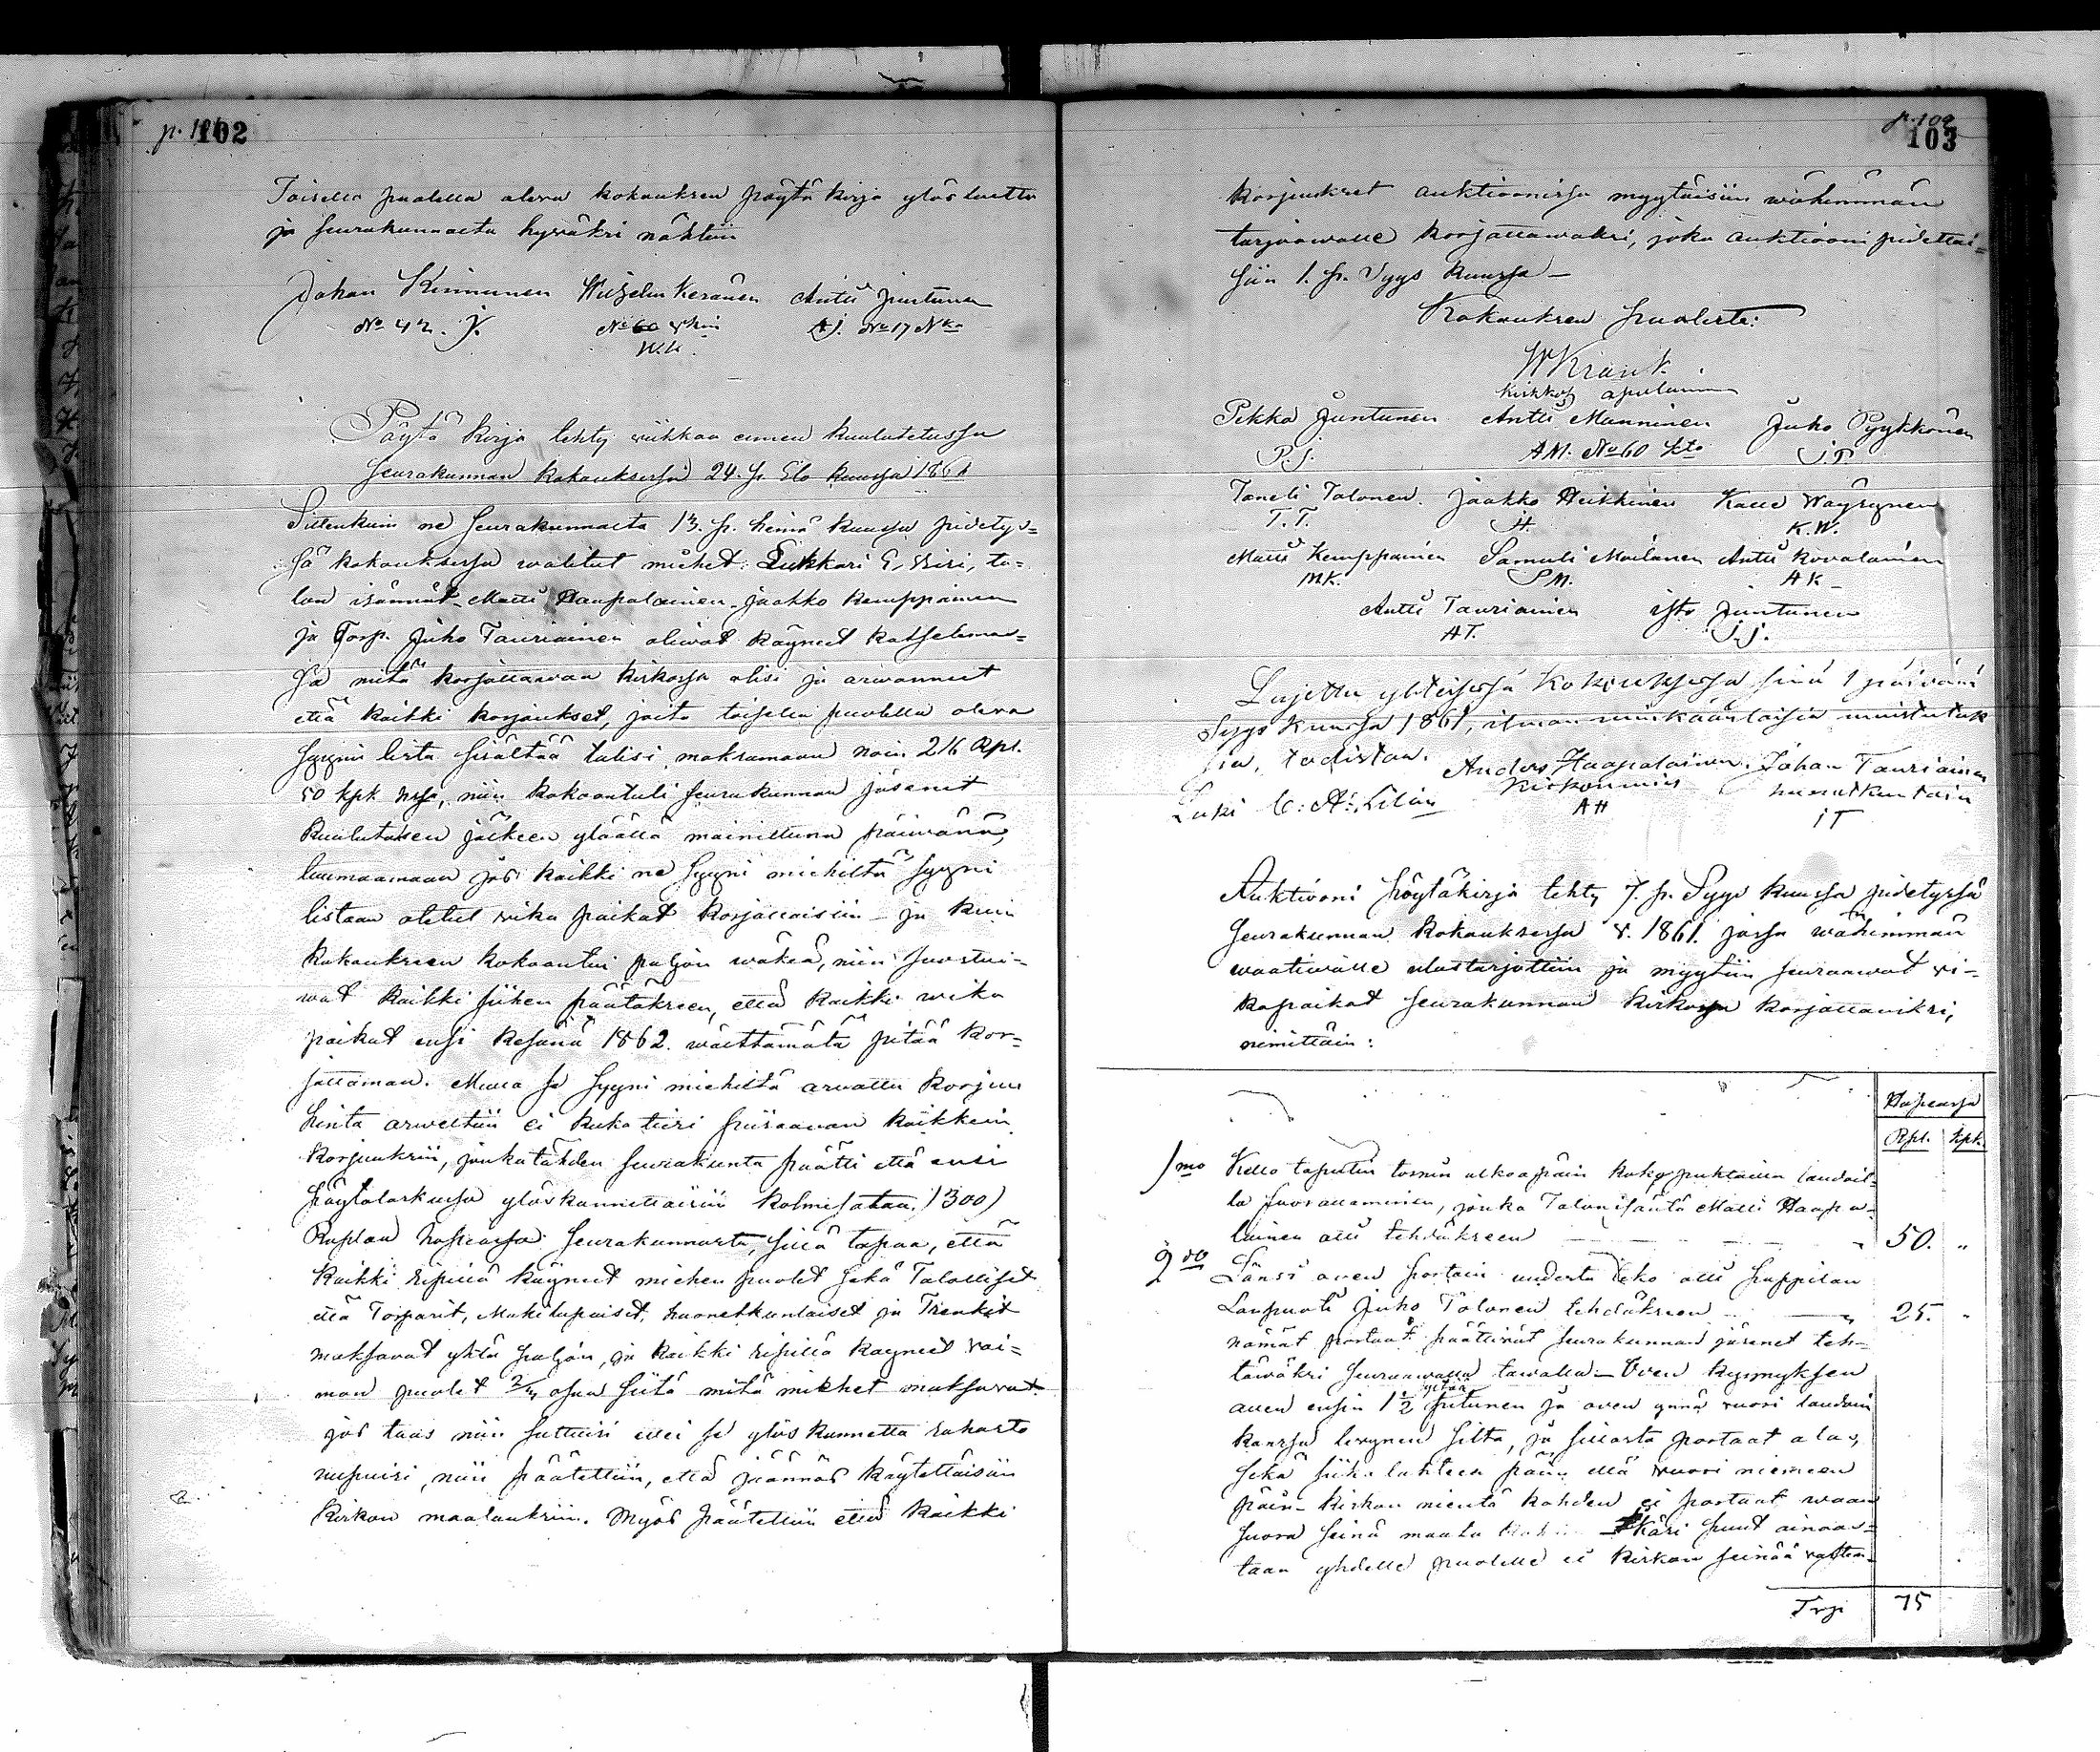 102
Toisella puolella olewa kokouksen pöytä kirja ylösluettu
ja seurakunnalta hywäksi nähtiin
Johan Kinnunen Wilhelm Keränen Antti Juntunen
No 42. J. No 60 W.K. A.J. No 17
Pöytä kirja tehty wiikkoa ennen kuulutetussa
seurakunnan kokouksessa 24. p. Elo kuussa 1861
Sittenkuin ne seurakunnalta 13. p. heinä kuussa pidetys-
sä kokouksessa walitut miehet: Lukkari ta-
lon isännät Matti Haapalainen Jaakko Kemppainen
ja Torp. Juho Tauriainen oliwat käyneet katselemas-
sa mitä korjattawaa kirkossa olisi ja arwanneet
että kaikki korjaukset, joita toisella puolella olewa
syyni lista sisältää tulisi maksamaan noin 216 Rpl.
50 kpk hopeassa, niin kokoontuli seurakunnan jäsenet
kuulutuksen jälkeen ylöällä mainittuna päiwänä,
tuumaamaan jos kaikki ne syyni miehiltä syyni
listaan otetut wika paikat korjattaisiin ja kuin
kokoukseen kokoontui paljon wäkeä, niin suostui-
wat kaikki siihen päätökseen, että kaikki wika
paikat ensi kesänä 1862. wälttämätä pitää kor-
jattaman. Mutta se syyni miehiltä arwattu korjuu
hinta arweltiin ei kukatiesi piisaawan kaikkiin
korjuuksiin, jonkatähden seurakunta päätti että ensi
käytölaskussa ylöskannettaisiin kolmesataa (300)
Ruplaa hopeassa seurakunnasta, sillä tapaa, että
kaikki ripillä käyneet miehen puolet sekä Talolliset
että Torparit, Mäkitupaiset, huonetkuntaiset ja Trenkit
maksawat yhtä paljon, ja kaikki ripillä käyneet wai-
mon puolet 2/3 osaa siitä mitä miehet maksawat
jos taas niin sattuisi ettei se ylös kannettu raha
, niin päätettiin, että jäännös käytettäisiin
kirkon maalauksiin. Myös päätettiin että kaikki
p. 102
103
korjuukset auktioonissa myytäisiin wähemmän
tarjoawalle korjattawaksi, joka auktiooni pidettäi-
siin 1. p. Syys kuussa –
Kokouksen puolesta:
W Krank
kirkkoh apulainen
Pekka Juntunen Antti Manninen Juho Pyykkönen
P.J. A.M. No 60 J.P.
Taneli Tolonen Jaakko Heikkinen Kalle Wäyrynen
T.T. J.H. K.W.
Matti Kemppainen Samuli Moilanen Antti Kovalainen
M.K. S.M. A K
Antti Tauriainen Juntunen
A T. J.J.
Lujettu yhteisessä Kokouksessa sinä 1 päiväni
Syys Kuussa 1861, ilman minkäänlaisia muistutuk
sia, todistaa. Anders Haapalainen Johan Tauriainen
Luki C: A: Kirkonmies
A H I T
Auktiooni pöytäkirja tehty 7. p. Syys kuussa pidetyssä
seurakunnan kokouksessa v. 1861. jossa wähimmän
waatiwalle ulostarjottiin ja myytiin seuraawat wi-
kapaikat seurakunnan kirkossa korjattawiksi,
nimittäin:
Hopeassa
Rpl. kpk.
1mo Kello tapulin tornin ulkoapäin laudoil-
la , jonka Talonisäntä Matti Haapa-
lainen otti tehdäkseen 50. "
2do Länsi owen portain uudesta teko otti pappilan
Lampuoti Juho Tolonen tehdäkseen 25. "
nämät portaat päättiwät seurakunnan jäsenet teh-
täwäksi seuraawalla tawalla – Owen kynnyksen
owen ensin 1 1/2 ja owen ynnä wuori laudoin
kanssa lewynen silta, ja sillasta portaat alas,
sekä päin että wuori niemeen
päin – kirkon mieltä kohden ei portaat waan
suora seinä maata käsi puut ainoas-
taan yhdelle puolelle ei kirkon seinää wasten
75